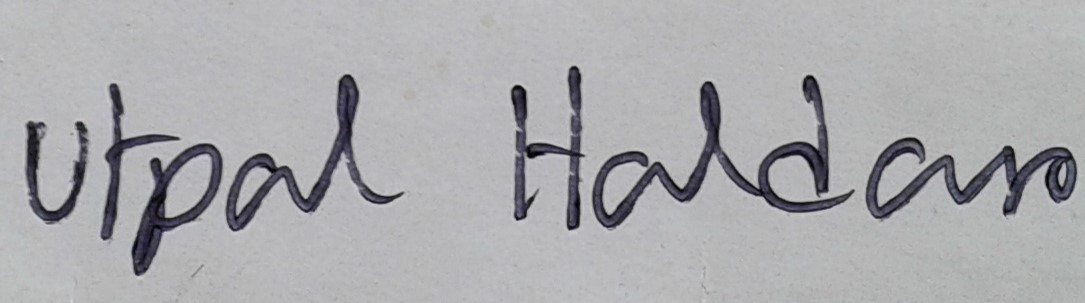 Utpal Haldar